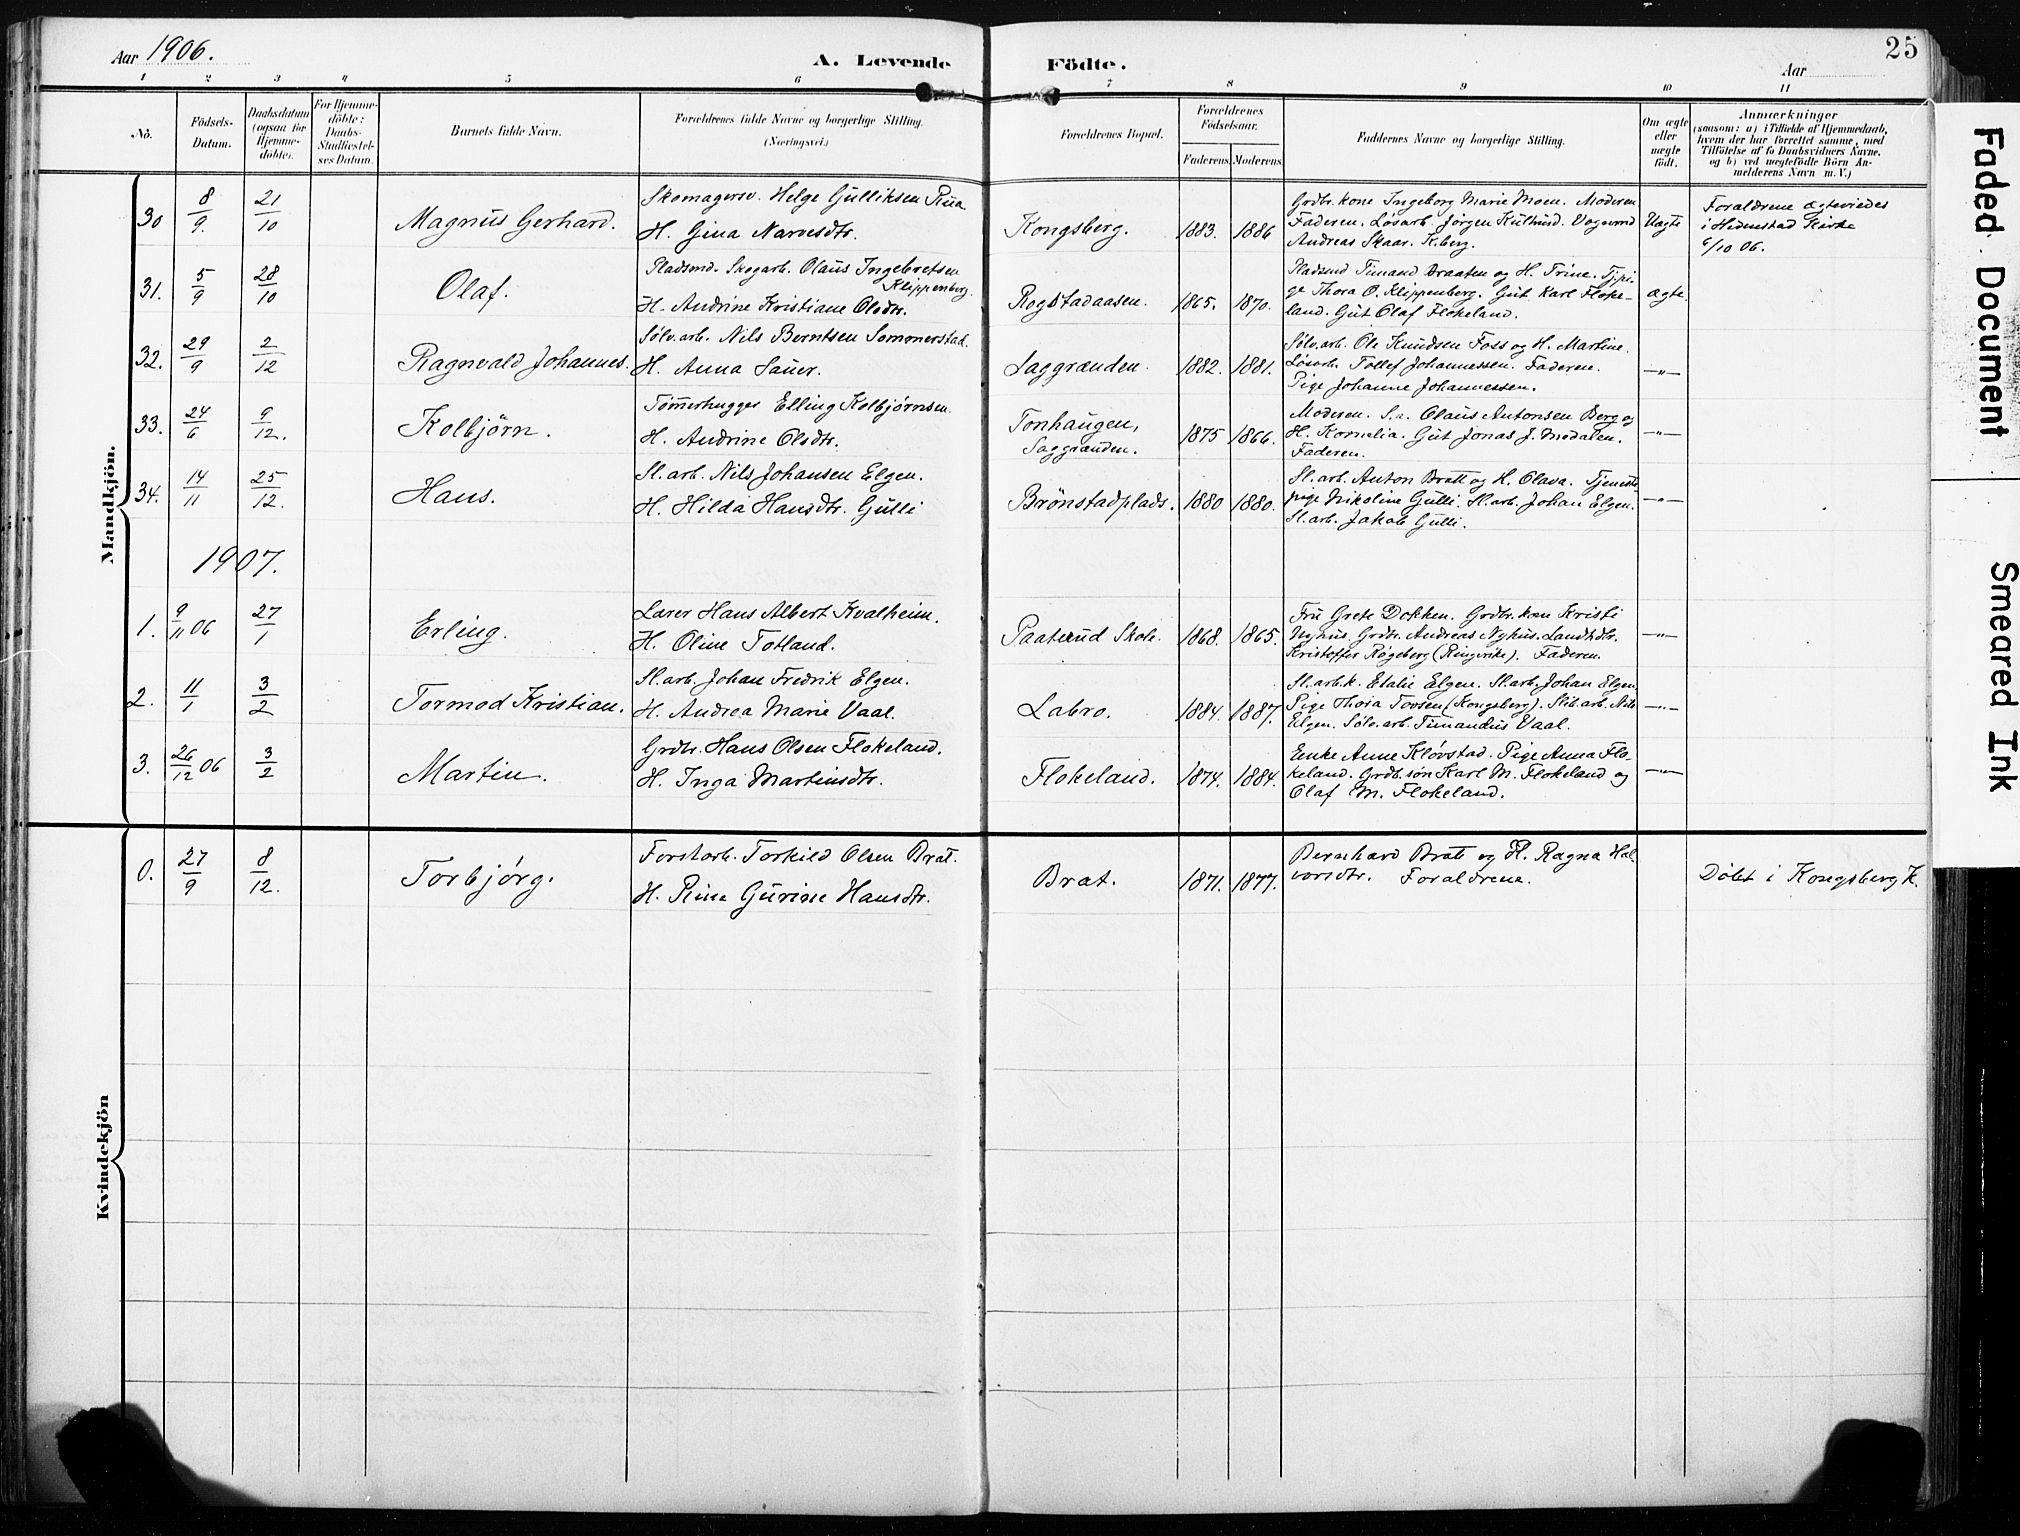 Aar 1906.
A. Levende Födte.
Aar
25
1 2 3 4 5 6 7 8 9 10 11
No.
Födsels-
Datum.
Daabsdatum
(ogsaa for
Hjemme-
döbte).
For Hjemme-
döbte:
Daabs-
Stadfæstel-
ses Datum.
Barnets fulde Navn.
Forældrenes fulde Navne og borgerlige Stilling.
(Næringsvei.)
Forældrenes Bopæl.
Forældrenes
Födselsaar.
Faderens. Moderens.
Faddernes Navne og borgerlige Stilling.
Om ægte
eller
uægte
født.
Anmærkninger
(saasom: a) i Tilfælde af Hjemmedaab,
hvem der har forrettet samme, med
Tilföielse af to Daabsvidners Navne,
og b) ved uægtefödte Börn An-
melderens Navn m. V.)
Mandkjön.
30
8/9.
21/10
Magnus Gerhard.
Skomagersv. Helge Gulliksen Rua
H. Gina Narvesdtr.
Kongsberg.
1883. 1886
Grdbr. kone Ingeborg Marie Moen. Moderen
Faderen. Løsarb. Jørgen Kulhud. Vognmd
Andreas Skaar. K.berg.
Uægte
Forældrene ægteviedes
i Hedenstad Kirke
6/10 06.
31.
5/9
28/10
Olaf.
Pladsmd. Skogarb. Olaus Ingebretsen
Klippenberg.
H. Andrine Kristiane Olsdtr.
Rogstadaasen.
1865. 1870.
Pladsmd Timand Braaten og H. Trine. Tjpi-
ge Thora O. Klippenberg. Gut Karl Floke-
land. Gut Olaf Flokeland.
ægte
32.
29/9
2/12
Ragnvald Johannes.
Sølv.arb. Nils Berntsen Sommerstad.
H. Anna Sauer.
Saggrænden.
1882. 1881.
Sølv.arb. Ole Knudsen Foss og H. Martine.
Løsarb. Tollef Johannessen. Faderen.
Pige Johanne Johannessen.
—"—
33.
24/6
9/12.
Kolbjörn.
Tømmerhugger Elling Kolbjørnsen.
H. Andrine Olsdtr.
Tonhaugen,
Saggrænden.
1875 1866.
Moderen. S.a. Olaus Antonsen Berg og
H. Kornelia. Gut Jonas J. Medalen.
Faderen.
—"—
34.
14/11
25/12.
Hans.
Sl.arb. Nils Johansen Elgen.
H. Hilda Hansdtr. Gulli
Brönstadplads.
1880 1880.
Sl.arb. Anton Bratt og H. Olava. Tjeneste-
pige Nikoline Gulli. Sl.arb. Johan Elgen.
Sl.arb. Jakob Gulli.
—"—
1907.
1.
9/11 06
27/1
Erling.
Lærer Hans Albert Kvalheim.
H. Oline Totland.
Paaterud Skole.
1868. 1865.
Fru Grete Dokken. Grdbr. kone Kristi
Nyhus. Grdbr. Andreas Nyhus. Landhdr.
Kristoffer Røgeberg (Ringerike). Faderen.
—"—
2.
11/1
3/2
Tormod Kristian.
Sl.arb. Johan Fredrik Elgen.
H. Andrea Marie Vaal.
Labro.
1884. 1887.
Sl.arb.k. Etalie Elgen. Sl.arb. Johan Elgen.
Pige Thora Tovsen (Kongsberg). Slib.arb. Nils
Elgen. Sølv.arb. Timandus Vaal.
—"—
3.
26/12 06
3/2
Martin.
Grdbr. Hans Olsen Flokeland.
H. Inga Martinsdtr.
Flokeland.
1874. 1884.
Enke Anne Kløvstad. Pige Anna Flo-
keland. Grdb.søn Karl M. Flokeland og
Olaf M. Flokeland.
—"—
Kvindekjön
0.
27/9
8/12.
Torbjørg.
Forstarb. Torkild Olsen Brat.
H. Rine Gurine Hansdtr.
Brat.
1871. 1877.
Bernhard Bratt og H. Ragna Hal-
vorsdtr. Forældrene.
Döbt i Kongsberg K.
Faded Document
Smeared Ink